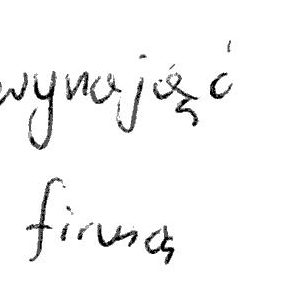 wynająć
firmą